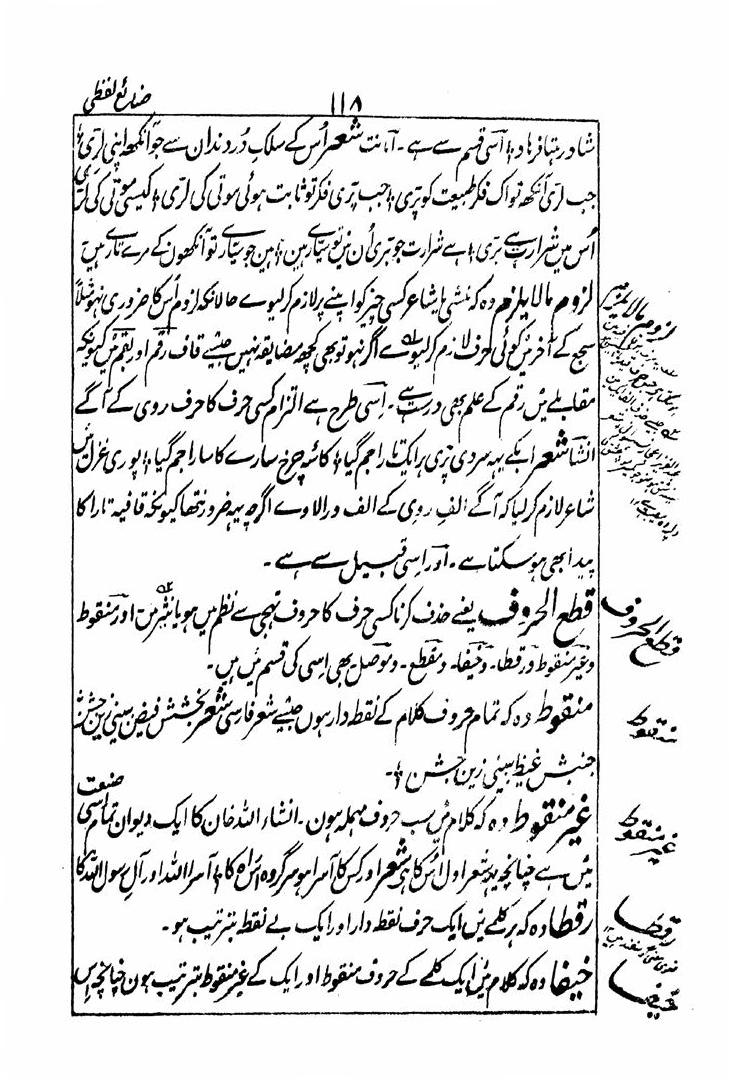 ۱۱۸
ضائع لفظی
شاد رہتا فرہاد ۱؎ اسی قسم سے ہے ۔ امانت شعر اُس کے سلکِ دُر دندان سے جو آنکھ اپنی لڑی
جب لڑی آنکھ تو اک فکر طبیعت کو پڑی ۱؎ جب پڑی فکر تو ثابت ہوئی موتی کی لڑی ۱؎ کیسی موتی کی لڑی
اُس میں شرارت ہے بڑی ۱؎ ہے شرارت جو بڑی اُن میں تو سیارے ہین ۱؎ ہین جو سیارے تو آنکھون کے مرے تارے ہین
لزوم مالا یلزم وہ کہ منشی یا شاعر کسی چیز کو اپنے پر لازم کر لیوے حالانکہ لزوم اُس کا ضروری نہو مثلاً
سجع کے آخر مین کوئی حرف لازم کر لیوے اگر نہو تو بھی کچھ مضایقہ نہین جیسے قاف رقم اور بقم مین کیونکہ
مقابلے مین رقم کے علم بھی درست ہے ۔ اِسی طرح ہے التزام کسی حرف کا حرف روی کے آگے
انشا شعر ابکے یہہ سردی پڑی ہر ایک تارا جم گیا ۱؎ کاسۂ چرخ سارے کا سارا جم گیا ۱؎ پوری غزل مین
شاعر لازم کر لیا کہ آگے الف روی کے الف و را لاوے اگرچہ یہہ ضرور نتھا کیونکہ قافیہ تارا کا
پیدا بھی ہو سکتا ہے ۔ اور اِسی قبیل سے ہے ۔
قطع الحروف یعنے حذف کرنا کسی حرف کا حروف تہجی سے نظم مین ہو یا نثر مین اور منقوط
و غیر منقوط و رقطا ۔ و خیفا ۔ و مقطع ۔ و موصل بھی اِسی کی قسم مین ہین ۔
منقوط وہ کہ تمام حروف کلام کے نقطہ دار ہوں جیسے شعر فارسی شعر بخشش فیض بینی زین جشن
جنبش غیظ بینی زین جشن ۱؎ ۔
غیر منقوط وہ کہ کلام مین سب حروف مہملہ ہون ۔ انشاء اللہ خان کا ایک دیوان تمام اسی صنعت
مین ہے چنانچہ یہہ شعر اول اُس کا ہی شعر اور کس کا آسرا ہو سرگروہ اس راہ کا ۱؎ آسرا اللہ اور آلِ رسول اللہ کا
رقطا وہ کہ ہر کلمے مین ایک حرف نقطہ دار اور ایک بے نقط بترتیب ہو ۔
خیفا وہ کہ کلام مین ایک کلمے کے حروف منقوط اور ایک کے غیر منقوط بترتیب ہون چنانچہ اِس
لزوم مالا یلزم
قطع الحروف
منقوط
غیر منقوط
رقطا
خیفا